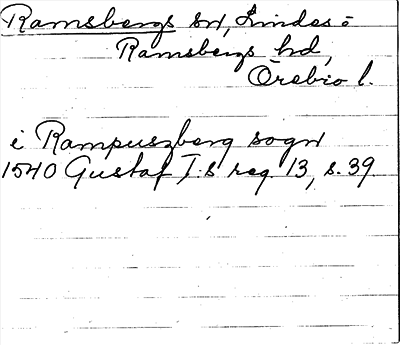 Ramsbergs sn, Lindes o
Ramsbergs hd,
Örebro l.
i Rampuszberg sogn
1540 Gustaf I:s reg. 13, s. 39